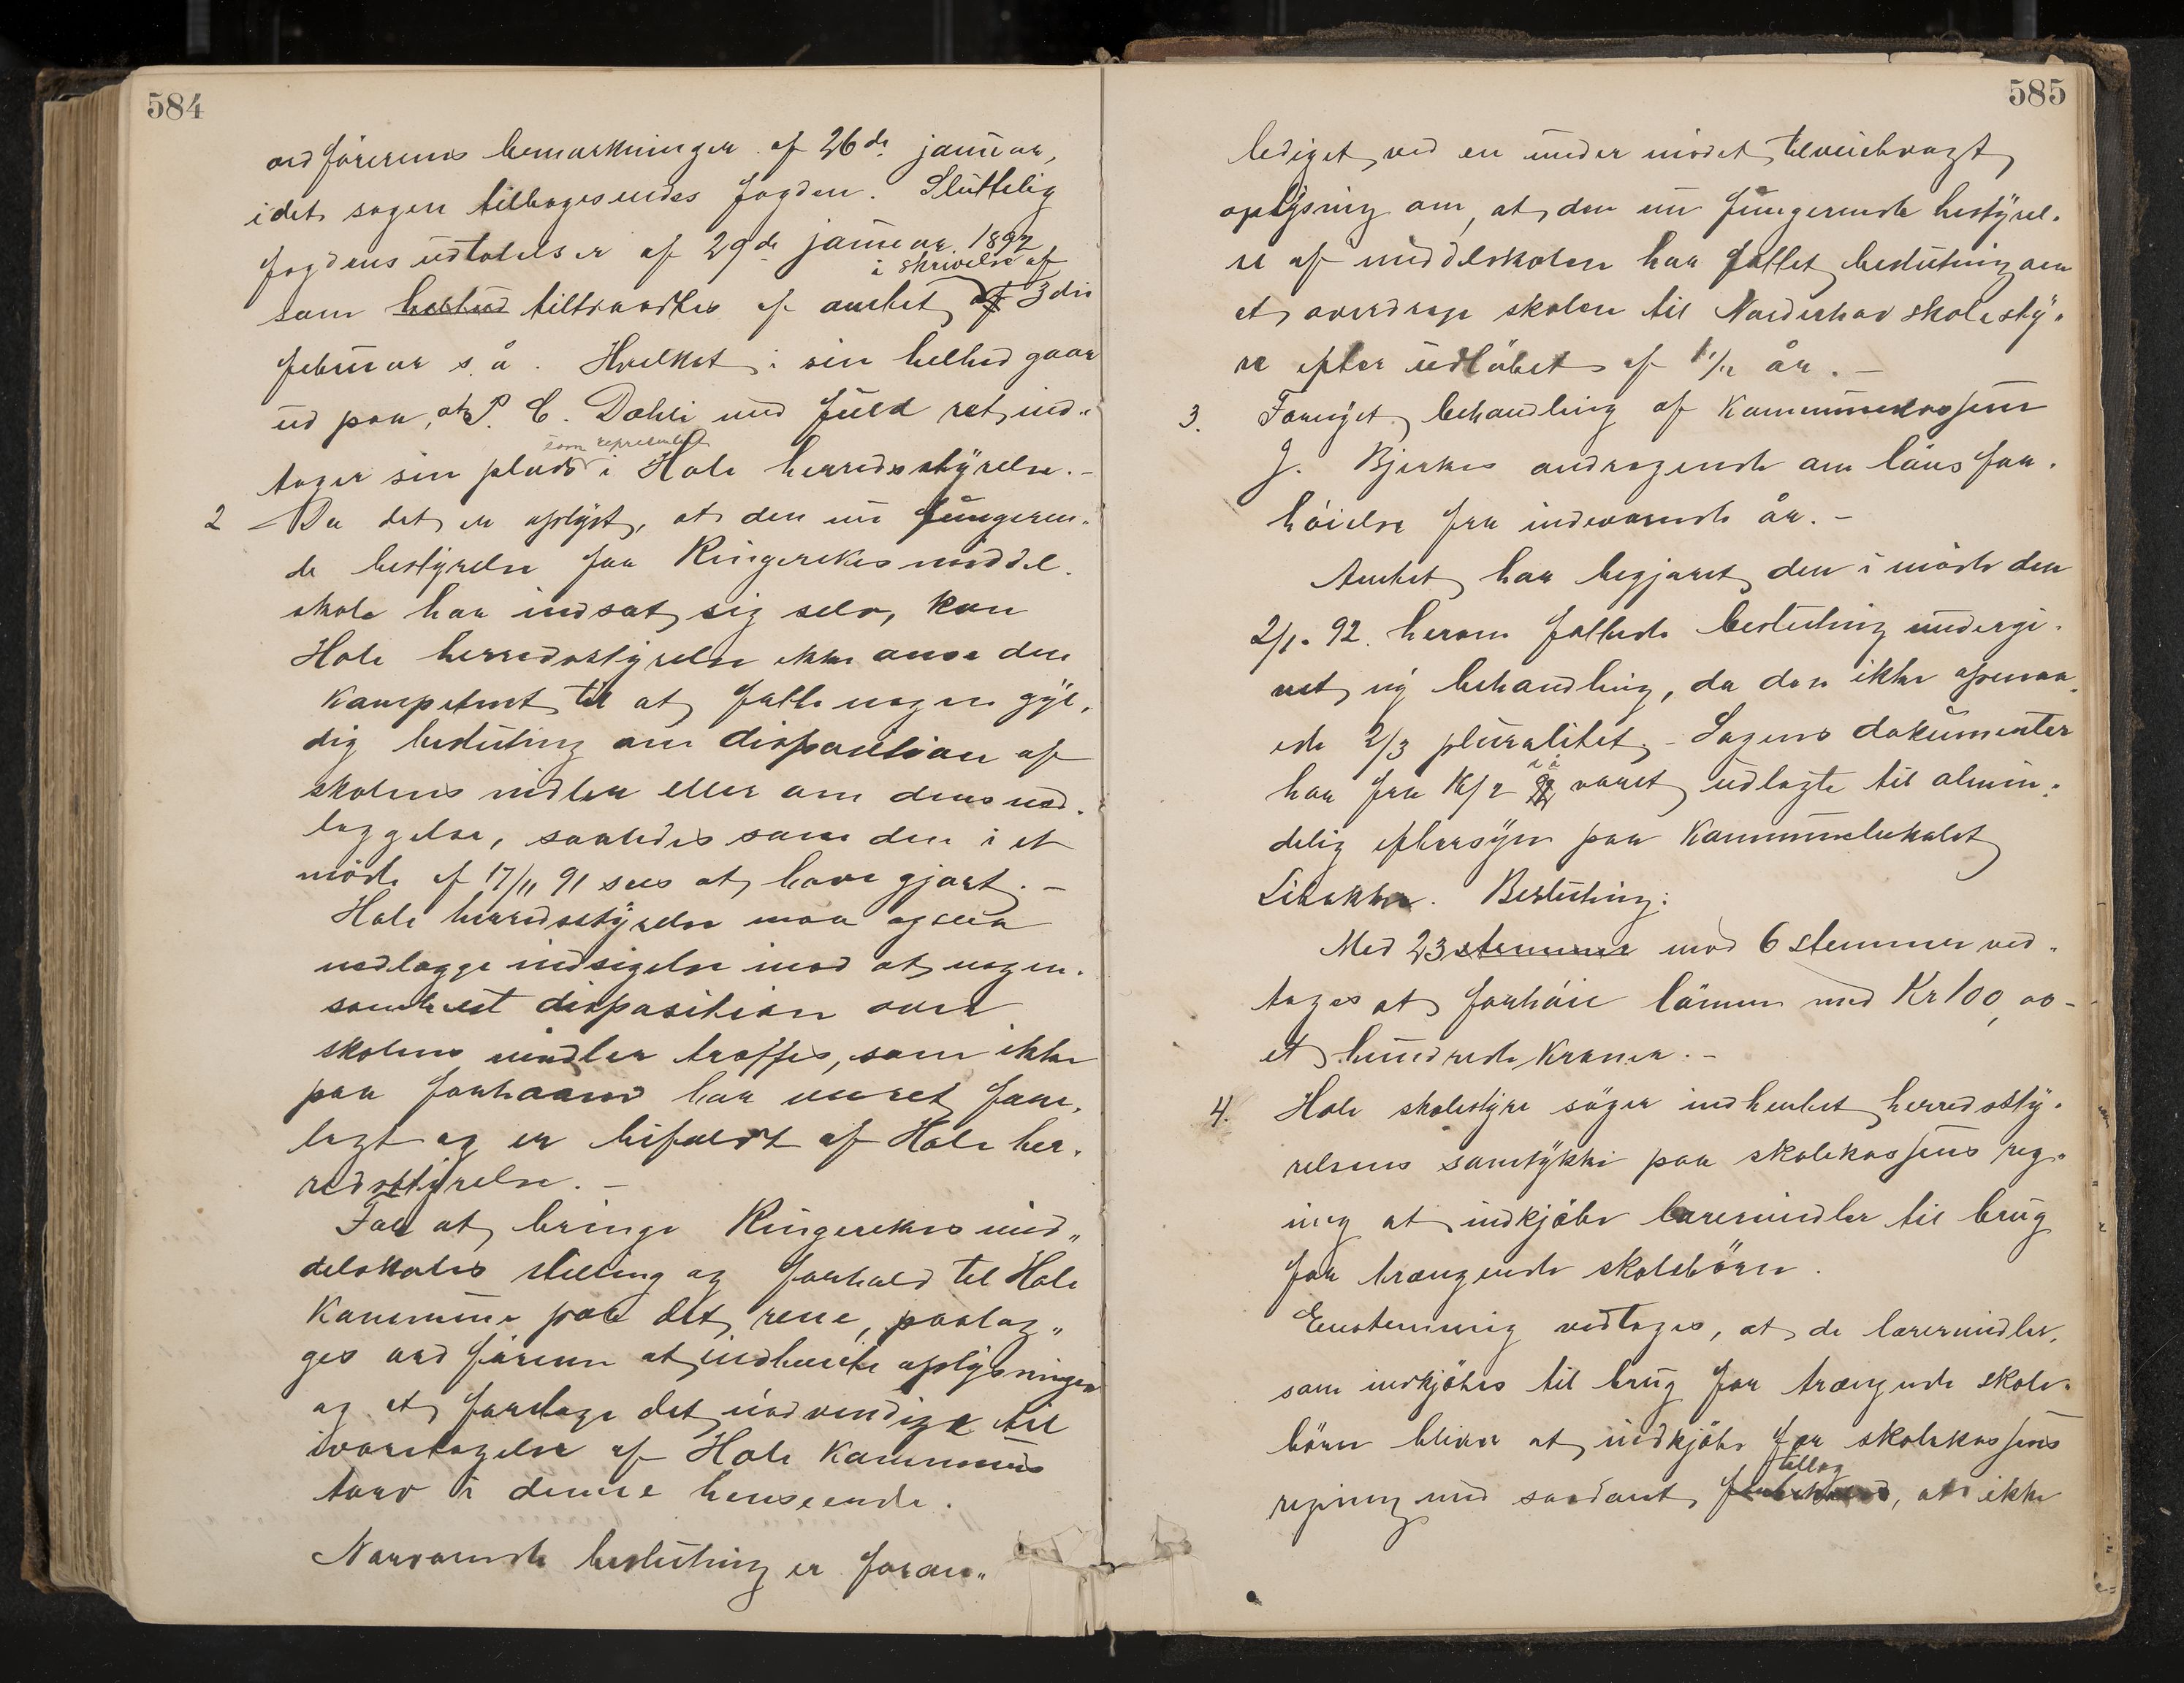 584
ordförerens bemærkninger af 26de januar,
idet sagen tilbagesendes fogden. Sluttelig
fogdens udtalelser af 29de januar 1892
i skrivelse af
som tiltraadtes af amtet 3die
februar s. å. Hvilket i sin helhed gaar
ud paa, at P. C. Dahli med fuld ret ind-
som representant
tager sin plads i Hole herredsstyrelse. -
2 - Da det er oplyst, at den nu fungeren-
de bestyrelse for Ringerikes middel-
skole har indsat sig selv, kan
Hole herredsstyrelse ikke anse den
kompetent til at fatte nogen gyl-
dig beslutning om disposition af
skolens midler eller om dens ned-
læggelse, saaledes som den i et
möde af 17/11 91 sees at have gjort. -
Hole herredsstyrelse maa ogsaa
nedlægge indsigelse mod at nogen-
somhelst disposition over
skolens midler træffes, som ikke
paa forhaand har været fore-
lagt og er bifaldt af Hole her-
redsstyrelse. -
For at bringe Ringerikes mid-
delskoles stilling og forhold til Hole
kommune paa det rene, paalæg-
ges ordföreren at indhente oplysninger
og at foretage det nödvendige til
ivaretagelse af Hole kommunes
tarv i denne henseende.
Nærværende beslutning er foran-
585
lediget ved en under mödet tilveiebragt
oplysning om, at den nu fungerende bestyrel-
se af middelskolen har fattet beslutning om
at overdrage skolen til Norderhov skolesty-
re efter udlöbet af 1 1/2 år. -
3. Fornyet behandling af kommunekasserer
J. Bjerkes andragende om lönsfor-
höielse fra indeværende år. -
Amtet har begjæret den i möde den
2/1. 92. herom fattede beslutning undergi-
vet ny behandling, da den ikke opnaa-
ede 2/3 pluralitet. - Sagens dokumenter
har fra 16/2 været udlagte til almin-
delig eftersyn paa kommunelokalet
Libakke. Beslutning:
Med 23 stemmer mod 6 stemmer ved-
tages at forhöie lönnen med Kr 100,00 -
et hundrede kroner. -
4. Hole skolestyre söger indhentet herredssty-
relsens samtykke paa skolekassens reg-
ning at indkjöbe læremidler til brug
for trængende skolebörn.
Enstemmig vedtages, at de læremidler,
som indkjöbes til brug for trængende skole-
börn bliver at indkjöbe for skolekassens
tillæg
regning med saadant, at ikke